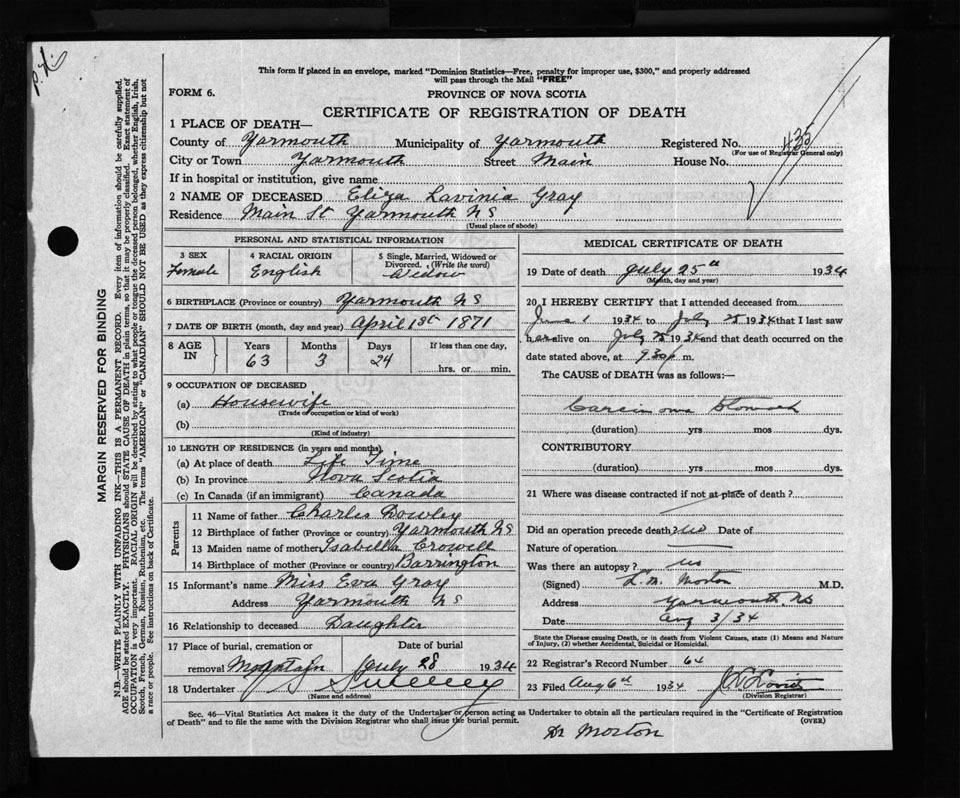 This form if placed in an envelope, marked "Dominion Statistics—Free, penalty for improper use, $300," and properly addressed
will pass through the Mail "FREE"
FORM 6.
PROVINCE OF NOVA SCOTIA
CERTIFICATE OF REGISTRATION OF DEATH
1 PLACE OF DEATH—
County of Yarmouth Municipality of Yarmouth Registered No. 435
(For use of Registrar General only)
City or Town Yarmouth Street Main House No.
If in hospital or institution, give name
2 NAME OF DECEASED Eliza Lavinia Gray
Residence Main St Yarmouth NS
(Usual place of abode)
PERSONAL AND STATISTICAL INFORMATION
3 SEX 4 RACIAL ORIGIN 5 Single, Married, Widowed or
Divorced. (Write the word)
Female English Widow
6 BIRTHPLACE (Province or country) Yarmouth NS
7 DATE OF BIRTH (month, day and year) April 1st 1871
8 AGE IN Years Months Days If less than one day,
63 3 24 hrs. or min.
9 OCCUPATION OF DECEASED
(a) Housewife
(Trade occupation or kind of work)
(b)
(Kind of industry)
10 LENGTH OF RESIDENCE (in years and months)
(a) At place of death Life Time
(b) In province Nova Scotia
(c) In Canada (if an immigrant) Canada
Parents
11 Name of father Charles Dowley
12 Birthplace of father (Province or country) Yarmouth NS
13 Maiden name of mother Isabella Crowell
14 Birthplace of mother (Province or country) Barrington
15 Informant's name Miss Eva Gray
Address Yarmouth NS
16 Relationship to deceased Daughter
17 Place of burial, cremation or Date of burial
removal Mountain July 28 1934
18 Undertaker Sweeney
(Name and address)
MEDICAL CERTIFICATE OF DEATH
19 Date of death July 25th 1934
(Month, day and year)
20 I HEREBY CERTIFY that I attended deceased from
June 1 1934 to July 25 1934 that I last saw
her alive on July 25 1934 and that death occurred on the
date stated above, at 930 p m.
The CAUSE of DEATH was as follows:—
Carcinoma Stomach
(duration) yrs mos dys.
CONTRIBUTORY
(duration) yrs mos dys.
21 Where was disease contracted if not at place of death?
Did an operation precede death? no Date of
Nature of operation
Was there an autopsy? no
(Signed) L.M. Morton M.D.
Address Yarmouth, NS
Date Aug 3/34
State the Disease causing Death, or in death from Violent Causes, state (1) Means and Nature
of Injury, (2) whether Accidental, Suicidal or Homicidal.
22 Registrar's Record Number 64
23 Filed Aug 6th 1934
(Division Registrar)
Sec. 46—Vital Statistics Act makes it the duty of the Undertaker or person acting as Undertaker to obtain all the particulars required in the "Certificate of Registration
of Death" and to file the same with the Division Registrar who shall issue the burial permit.
(OVER)
Dr Morton
MARGIN RESERVED FOR BINDING
N.B.—WRITE PLAINLY WITH UNFADING INK—THIS IS A PERMANENT RECORD. Every item of information should be carefully supplied.
AGE should be stated EXACTLY. PHYSICIANS should STATE CAUSE OF DEATH in plain terms, so that it may be properly classified. Exact statement of
OCCUPATION is very important. RACIAL ORIGIN will be described by stating to what people or tongue the deceased person belonged, whether English, Irish,
Scotch, French, German, Russian, Ruthenian, etc. The terms "AMERICAN" or "CANADIAN" SHOULD NOT BE USED as they express citizenship but not
a race or people. See instructions on back of Certificate.